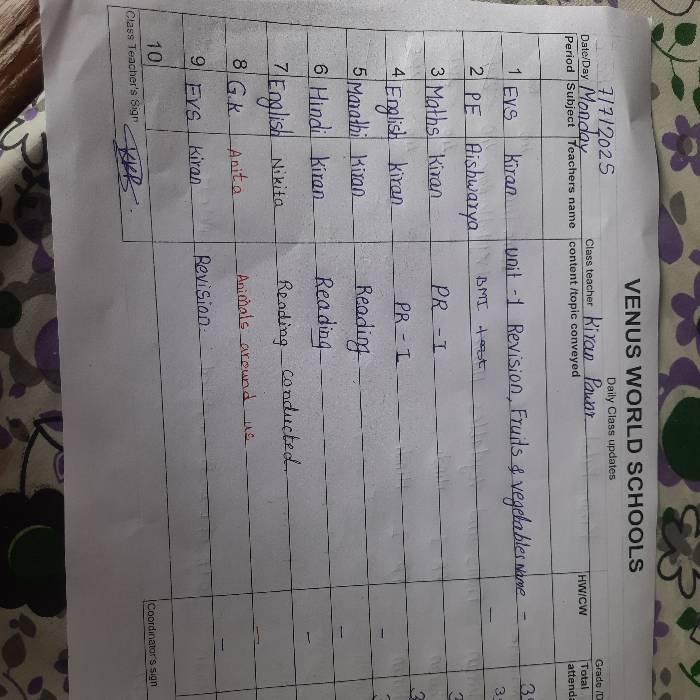 VENUS WORLD SCHOOLS
Daily Class updates
Date/Day 7/7/2025 Monday Class teacher Kiran Pawar Grade
Period Subject Teachers name content /topic conveyed HW/CW Total attend
1 EVS Kiran unit - 1 Revision, Fruits & vegetables Name -
2 PE Aishwarya BMI -
3 Maths Kiran PR - I
4 English Kiran PR - I -
5 Marathi Kiran Reading -
6 Hindi Kiran Reading -
7 English Nikita Reading conducted
8 G.K Anita Animals around us -
9 EVS Kiran Revision. -
10
Class Teacher's Sign Coordinator's sign